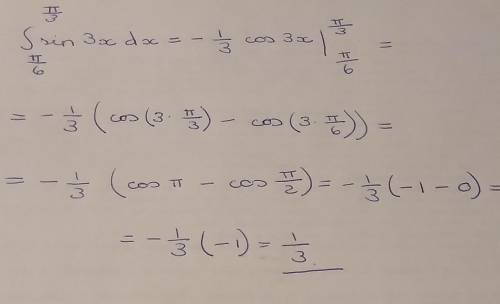 ∫_{π/6}^{π/3} sin 3x dx = - 1/3 cos 3x |_{π/6}^{π/3} =
= - 1/3 (cos(3 · π/3) - cos(3 · π/6)) =
= - 1/3 (cos π - cos π/2) = - 1/3 (-1 - 0) =
= - 1/3 (-1) = 1/3